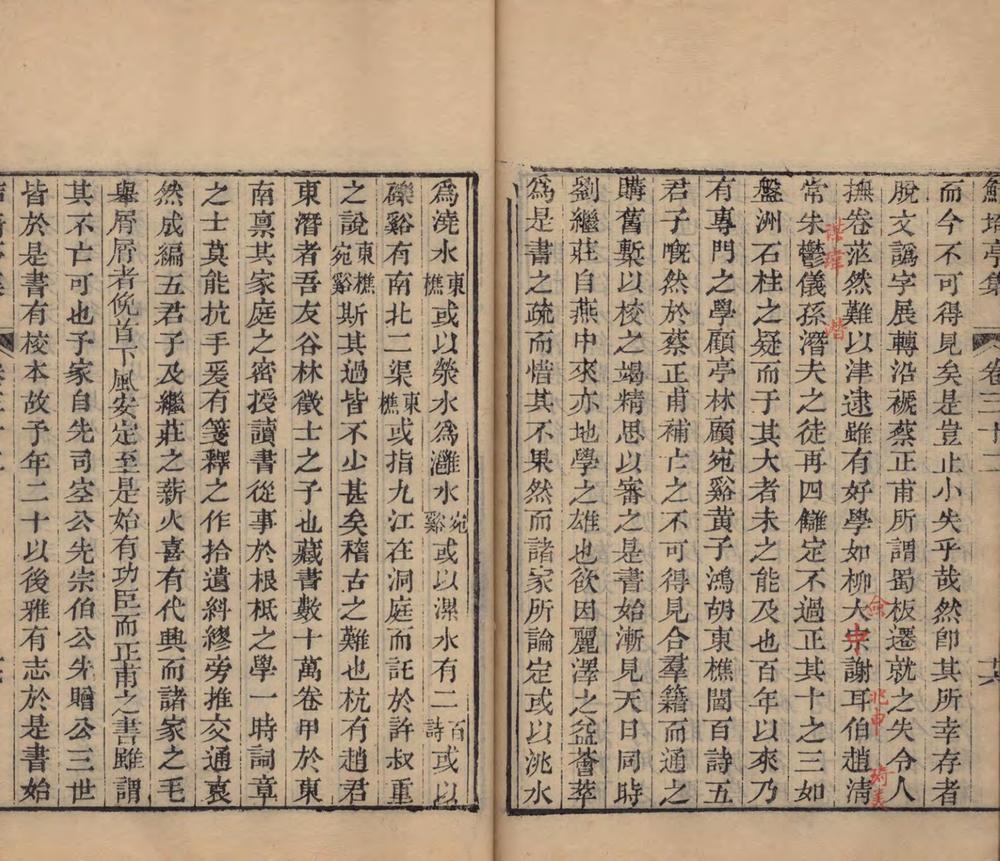 鮚埼亭集 卷三十二 十六
而今不可得見矣是豈止小失乎哉然卽其所幸存者
脫文譌字展轉沿褫蔡正甫所謂蜀板遷就之失令人
撫卷茫然難以津逮雖有好學如柳大宗謝耳伯趙淸
僉
中
兆申
琦美
常朱鬱儀孫潛夫之徒再四讎定不過正其十之三如
謀㙔
潛
盤洲石柱之疑而于其大者未之能及也百年以來乃
有專門之學顧亭林顧宛谿黃子鴻胡東樵閻百詩五
君子慨然於蔡正甫補亡之不可得見合羣籍而通之
購舊槧以校之竭精思以審之是書始漸見天日同時
劉繼莊自燕中來亦地學之雄也欲因麗澤之益薈萃
爲是書之疏而惜其不果然而諸家所論定或以洮水
爲澆水東樵或以滎水爲灉水宛谿或以漯水有二百詩或以
礫谿有南北二渠東樵或指九江在洞庭而託於許叔重
之說東樵宛谿斯其過皆不少甚矣稽古之難也杭有趙君
東潛者吾友谷林徵士之子也藏書數十萬卷甲於東
南禀其家庭之密授讀書從事於根柢之學一時詞章
之士莫能抗手爰有箋釋之作拾遺糾繆旁推交通裒
然成編五君子及繼莊之薪火喜有代興而諸家之毛
舉屑屑者俛首下風安定至是始有功臣而正甫之書雖謂
其不亡可也予家自先司空公先宗伯公先贈公三世
皆於是書有校本故予年二十以後雅有志於是書始